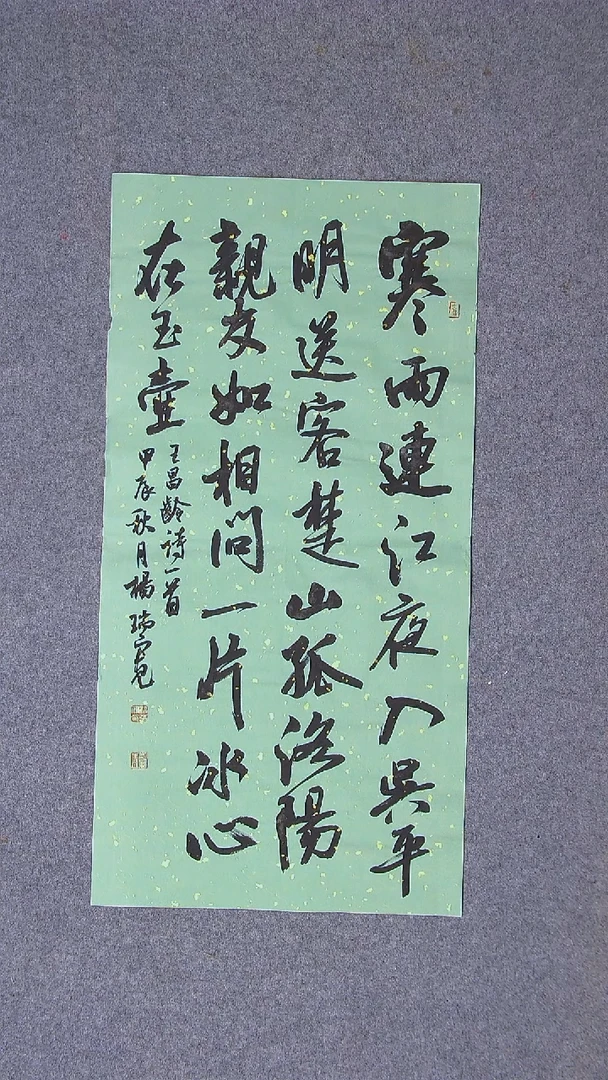 寒雨連江夜入吳平
明送客楚山孤洛陽
親友如相問一片冰心
在玉壺
王昌齡詩一首
甲辰秋月楊瑞寬